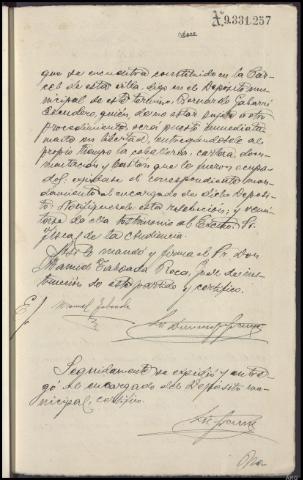 X.9.331.257
doce
que se encuentra constituido en la Cár-
cel de esta villa, digo en el Depósito mu-
nicipal de este término, Bernardo Gabarri
Escudero, quién de no estar sujeto a otro
procedimiento será puesto inmediata-
mente en libertad, entregándosele al
propio tiempo la caballería, cartera, docu-
mentación y bastón que le fueron ocupa-
dos; expídase el correspondiente man-
damiento al encargado de dicho Depósi-
to. Notifíquesele esta resolución; y remí-
tase de ella testimonio al Excmo. Sr.
Fiscal de la Audiencia.
Así lo mandó y firma el Sr. Don
Manuel Taboada Roca, Juez de ins-
trucción de este partido y certifico.
E/
Manuel Taboada
Seguidamente se expidió y entre-
gó al encargado del Depósito mu-
nicipal, certifico.